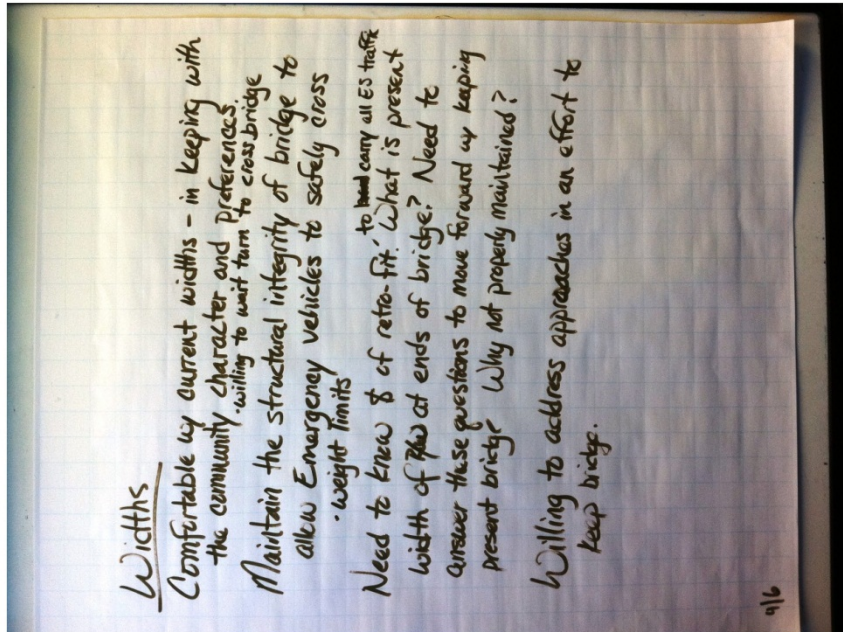 Widths
Comfortable w/ current widths - in keeping with
the community character and preferences.
· willing to wait turn to cross bridge
Maintain the structural integrity of bridge to
allow Emergency vehicles to safely cross
· weight limits
to carry all ES traffic
Need to know $ of retro-fit. What is present
width of at ends of bridge? Need to
answer these questions to move forward w/ keeping
present bridge. Why not properly maintained?
Willing to address approaches in an effort to
keep bridge.
9/6